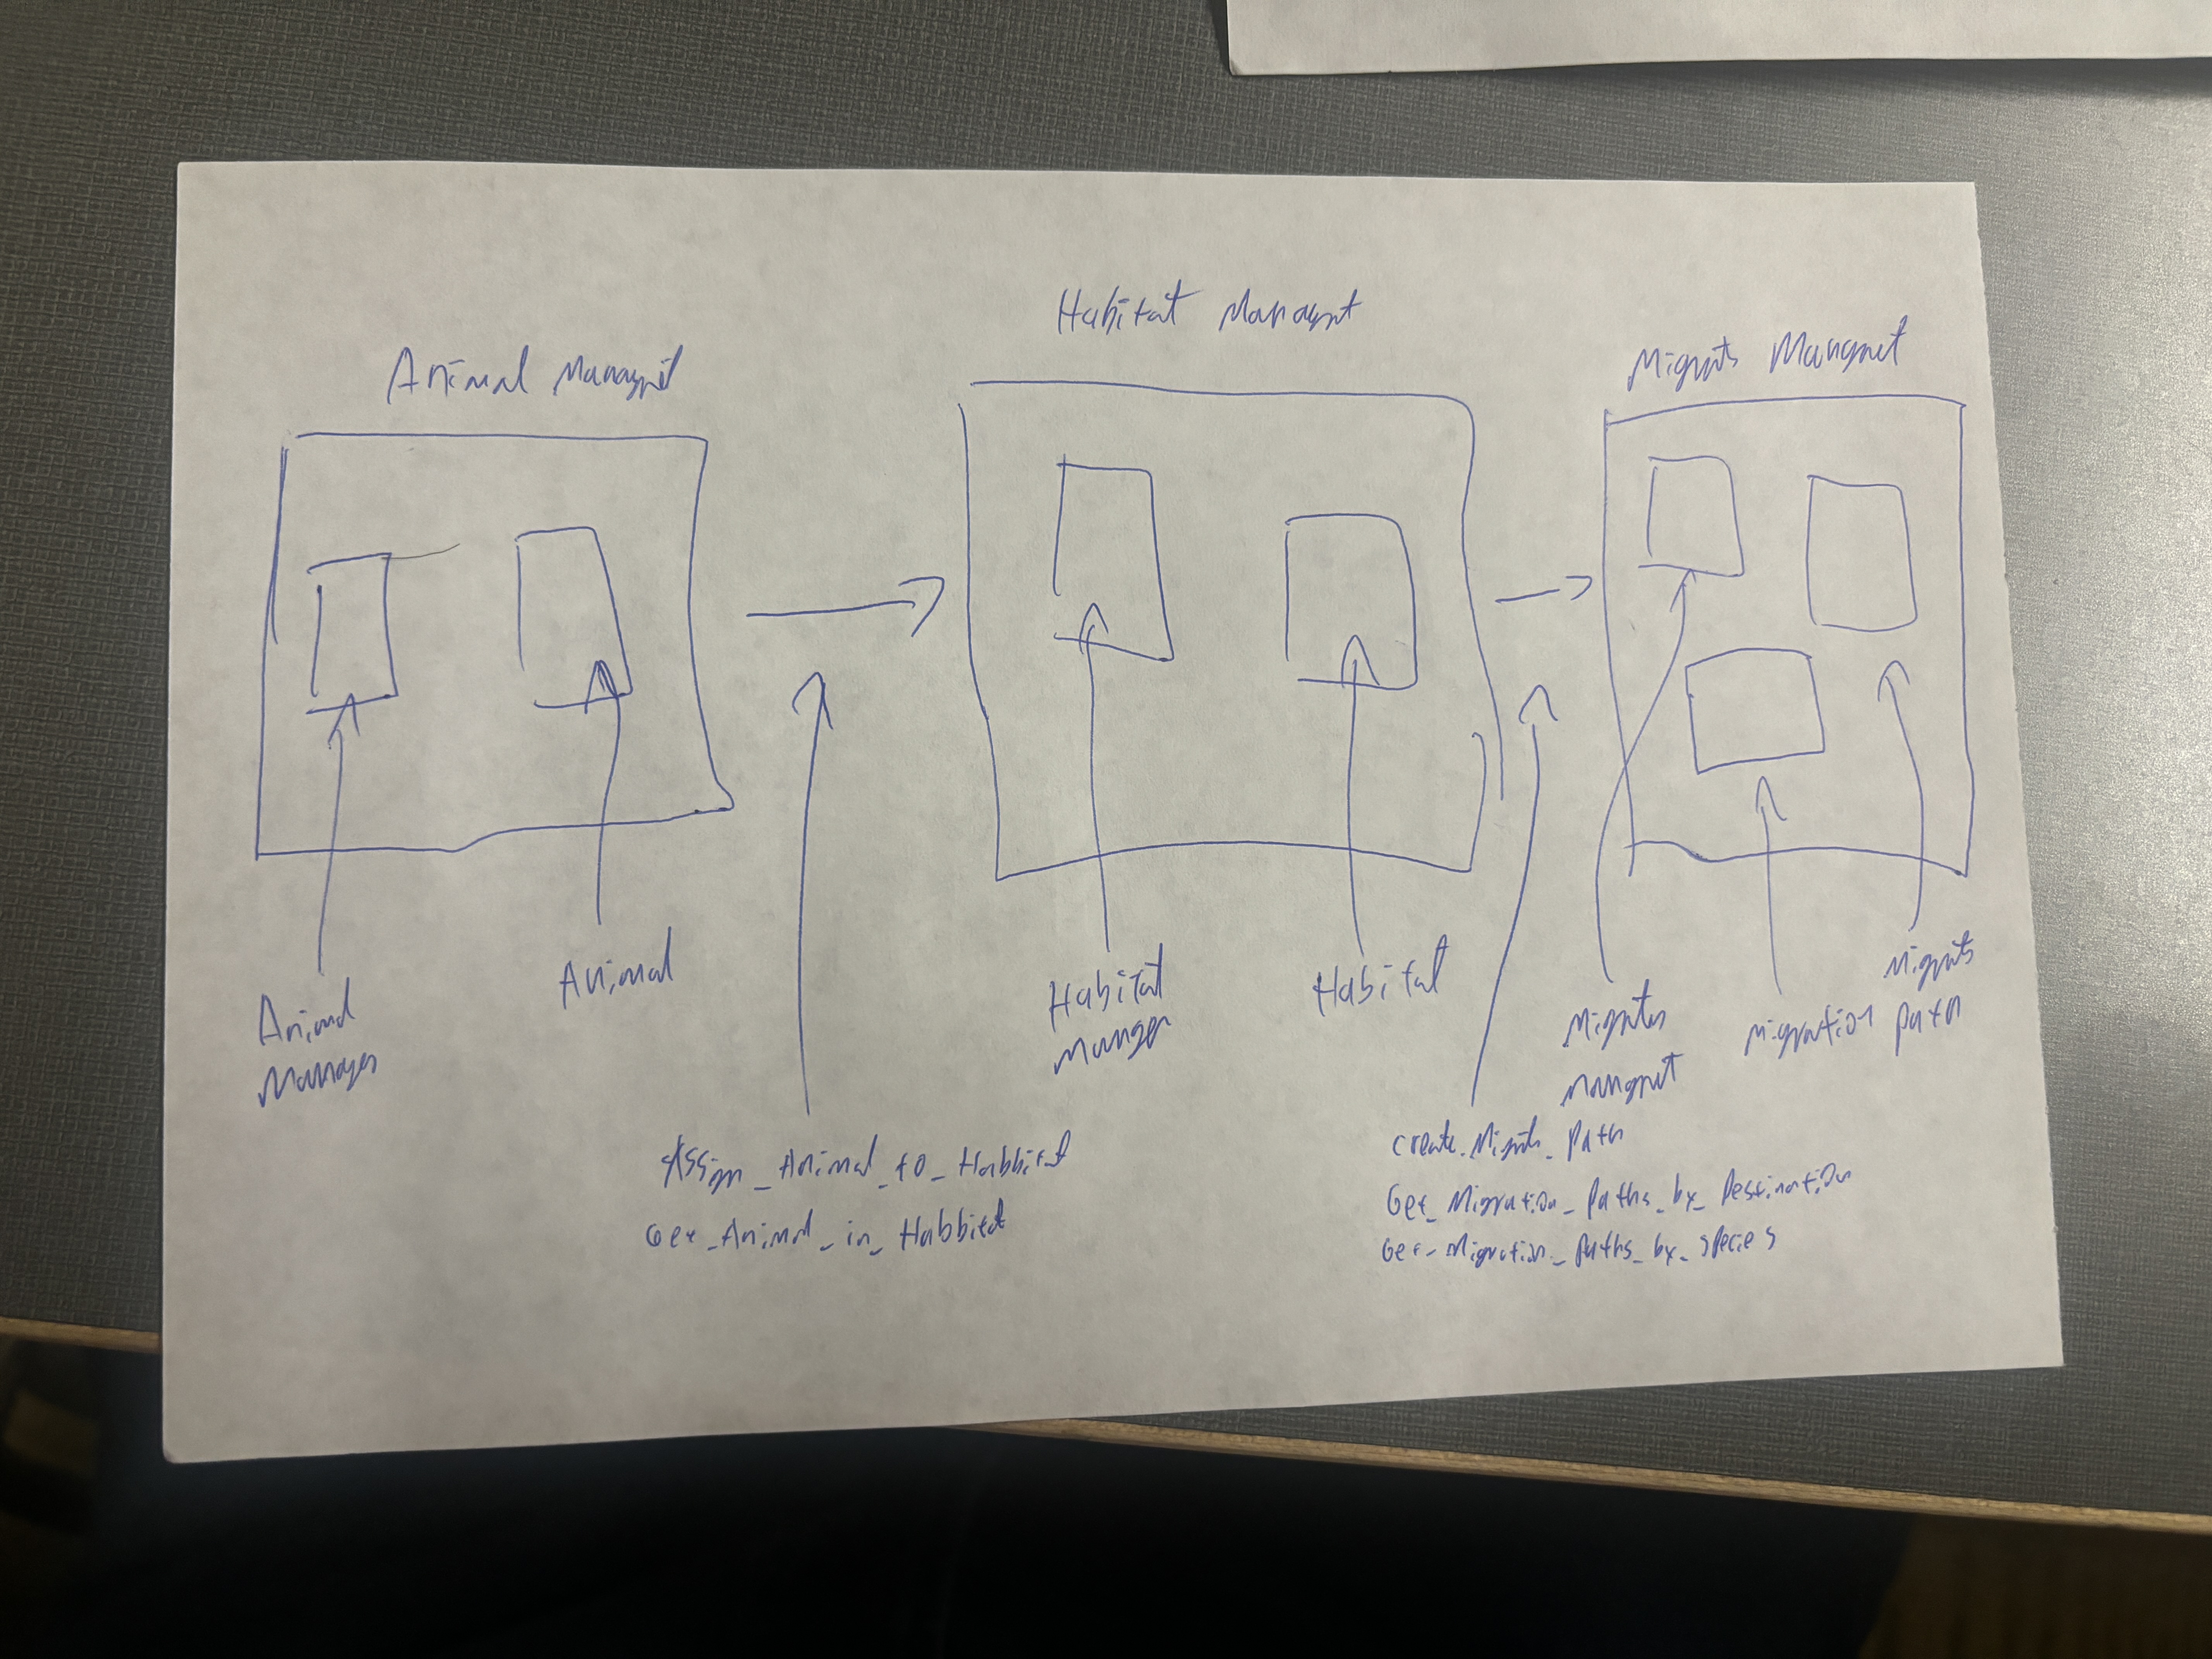 Animal Mangmt
Habitat Managmt
Migrats Mangmt
Animal
Manager
Animal
Habitat
Manger
Habitat
Migratn
Mangmt
Migration Path
Migrats
Assign_Animal_to_Habbitat
Get_Animal_in_Habbitat
create_Migratn_Path
Get_Migration_Paths_by_Destination
Get_Migration_Paths_by_species